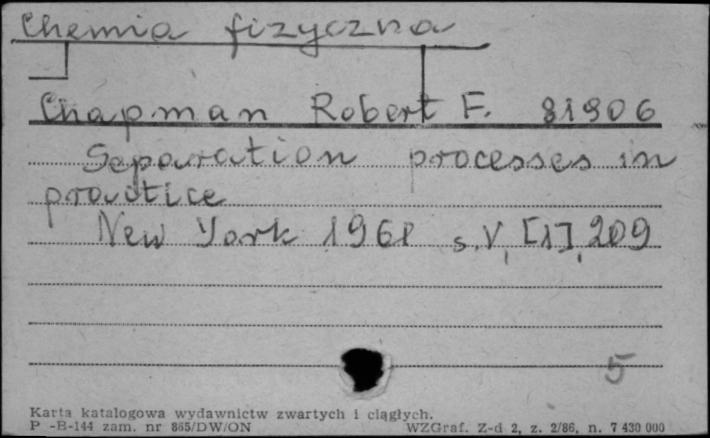 Chemia fizyczna
Chapman Robert F. 81906
Separation processes in
practice
New York 1961 s. V, [1], 209
5
Karta katalogowa wydawnictw zwartych i ciągłych.
P -B-144 zam. nr 865/DW/ON WZGraf. Z-d 2, z. 2/86, n. 7 430 000